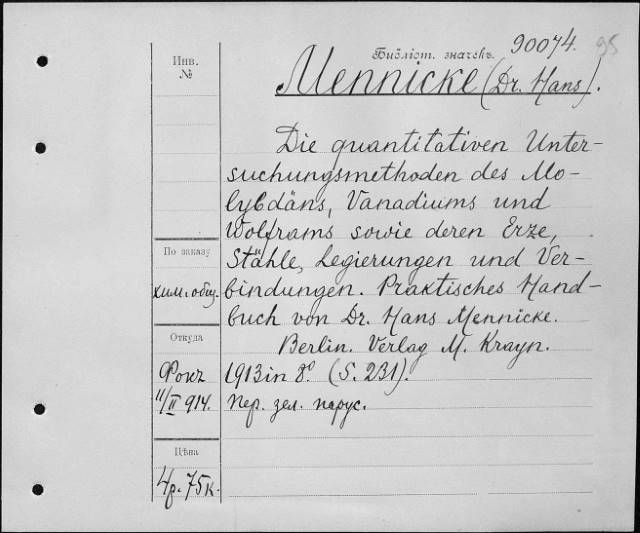 Инв.
№
Библіот. значекъ.
90074.
95
Mennicke (Dr. Hans).
Die quantitativen Unter-
suchungsmethoden des Mo-
lybdäns, Vanadiums und
Wolframs sowie deren Erze,
По заказу
Stähle, Legierungen und Ver-
хим. общ.
bindungen. Praktisches Hand-
buch von Dr. Hans Mennicke.
Откуда
Berlin. Verlag M. Krayn.
1913 in 8º. (S. 231).
11/II 914.
Пер. зел. парус.
Цѣна
4р. 75к.